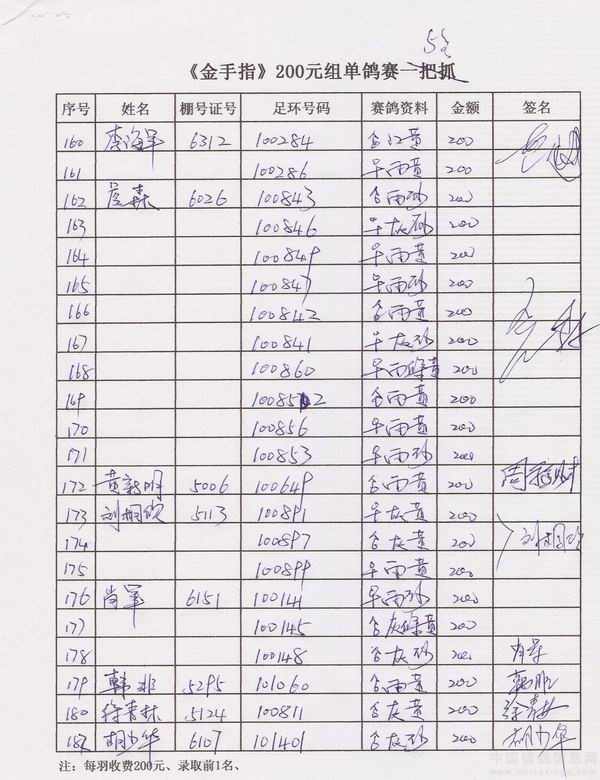 5名
《金手指》200元组单鸽赛一把抓
序号 姓名 棚号证号 足环号码 赛鸽资料 金额 签名
160 李海军 6312 100284 舍红黄 200
161 100286 早雨黄 200
162 庞森 6026 100843 舍雨砂 200
163 100846 早灰砂 200
164 100849 早雨黄 200
165 100847 早雨砂 200
166 100842 舍雨黄 200
167 100841 早灰砂 200
168 100860 早雨绛黄 200
169 100852 舍雨黄 200
170 100856 早雨黄 200
171 100853 早雨砂 200
172 黄新明 5006 100649 舍雨黄 200
173 刘桐欣 5113 100891 早灰黄 200 刘桐欣
174 100897 舍灰黄 200
175 100899 早雨黄 200
176 肖军 6151 100141 早雨砂 200
177 100145 舍灰绛黄 200
178 100148 舍灰砂 200 肖军
179 韩非 5295 101060 舍雨黄 200
180 徐春林 5124 100811 舍灰黄 200 徐春林
182 胡少华 6107 101401 舍灰砂 200 胡少华
注：每羽收费200元、录取前1名、
中国信鸽信息网
www.chinaxinge.com